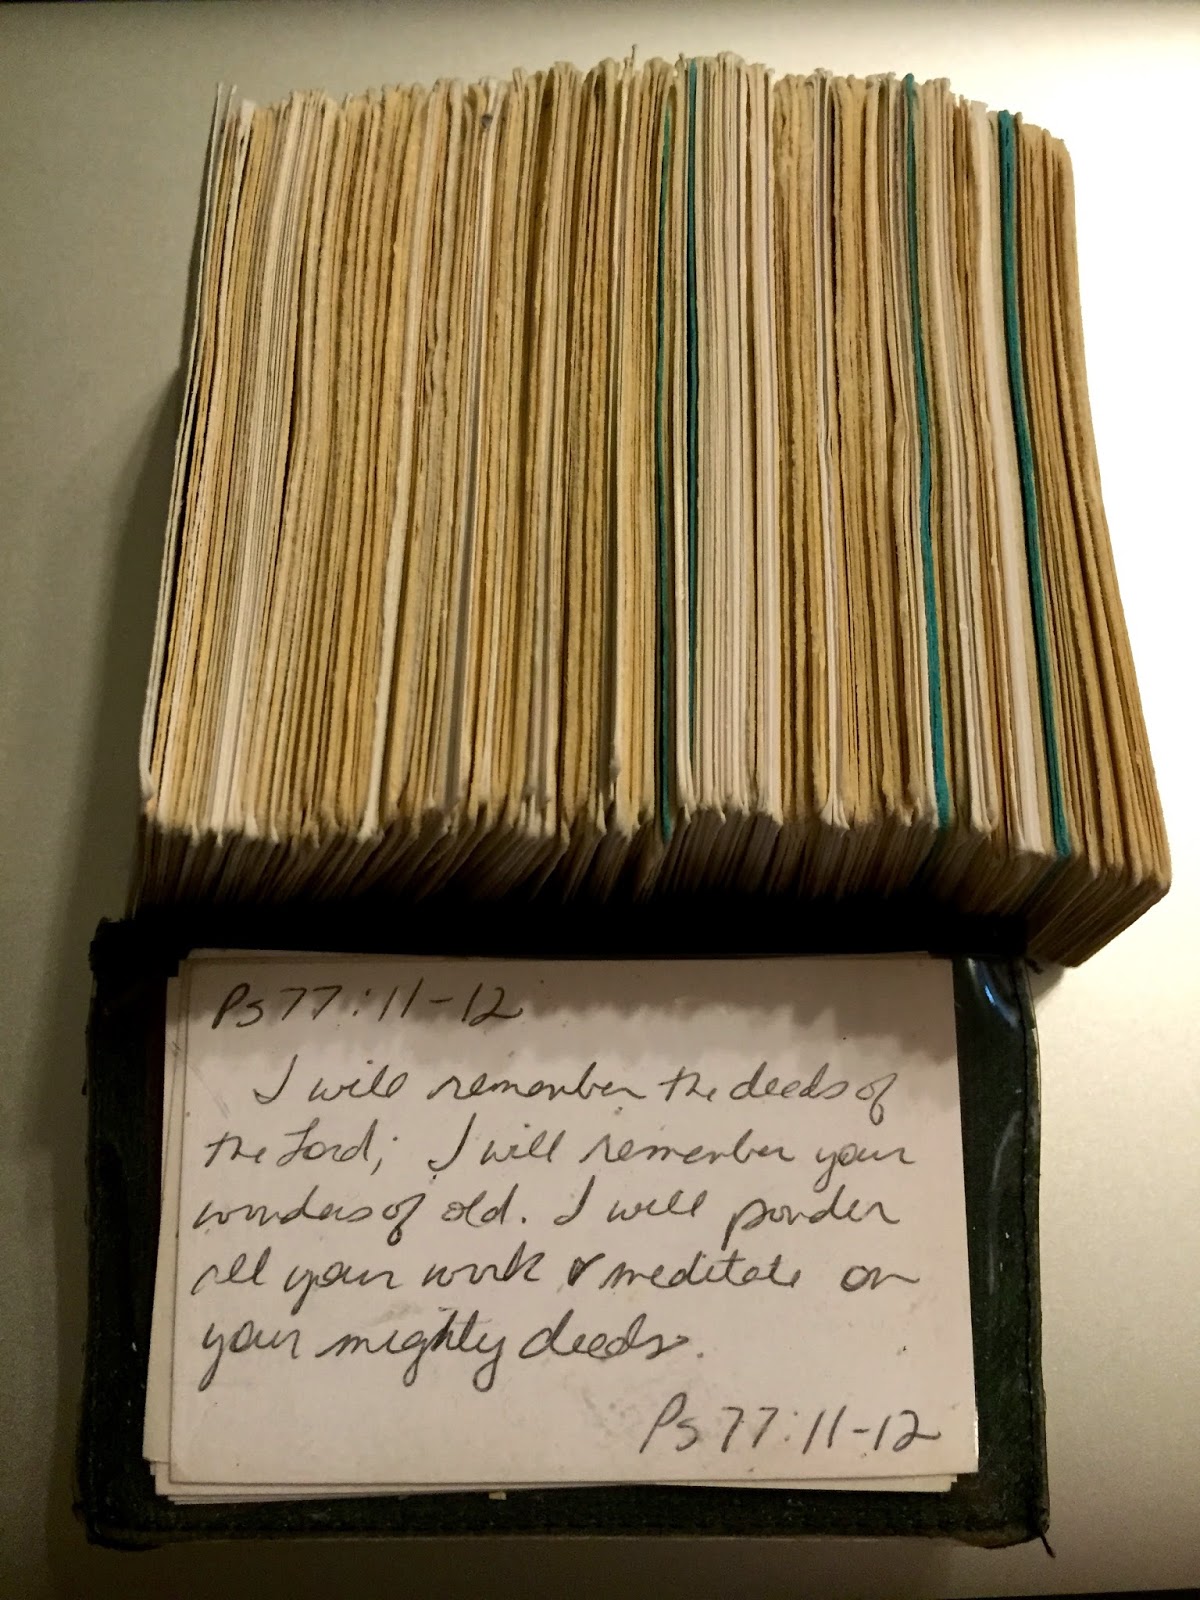 Ps 77:11-12
I will remember the deeds of
the Lord; I will remember your
wonders of old. I will ponder
all your work & meditate on
your mighty deeds.
Ps 77:11-12